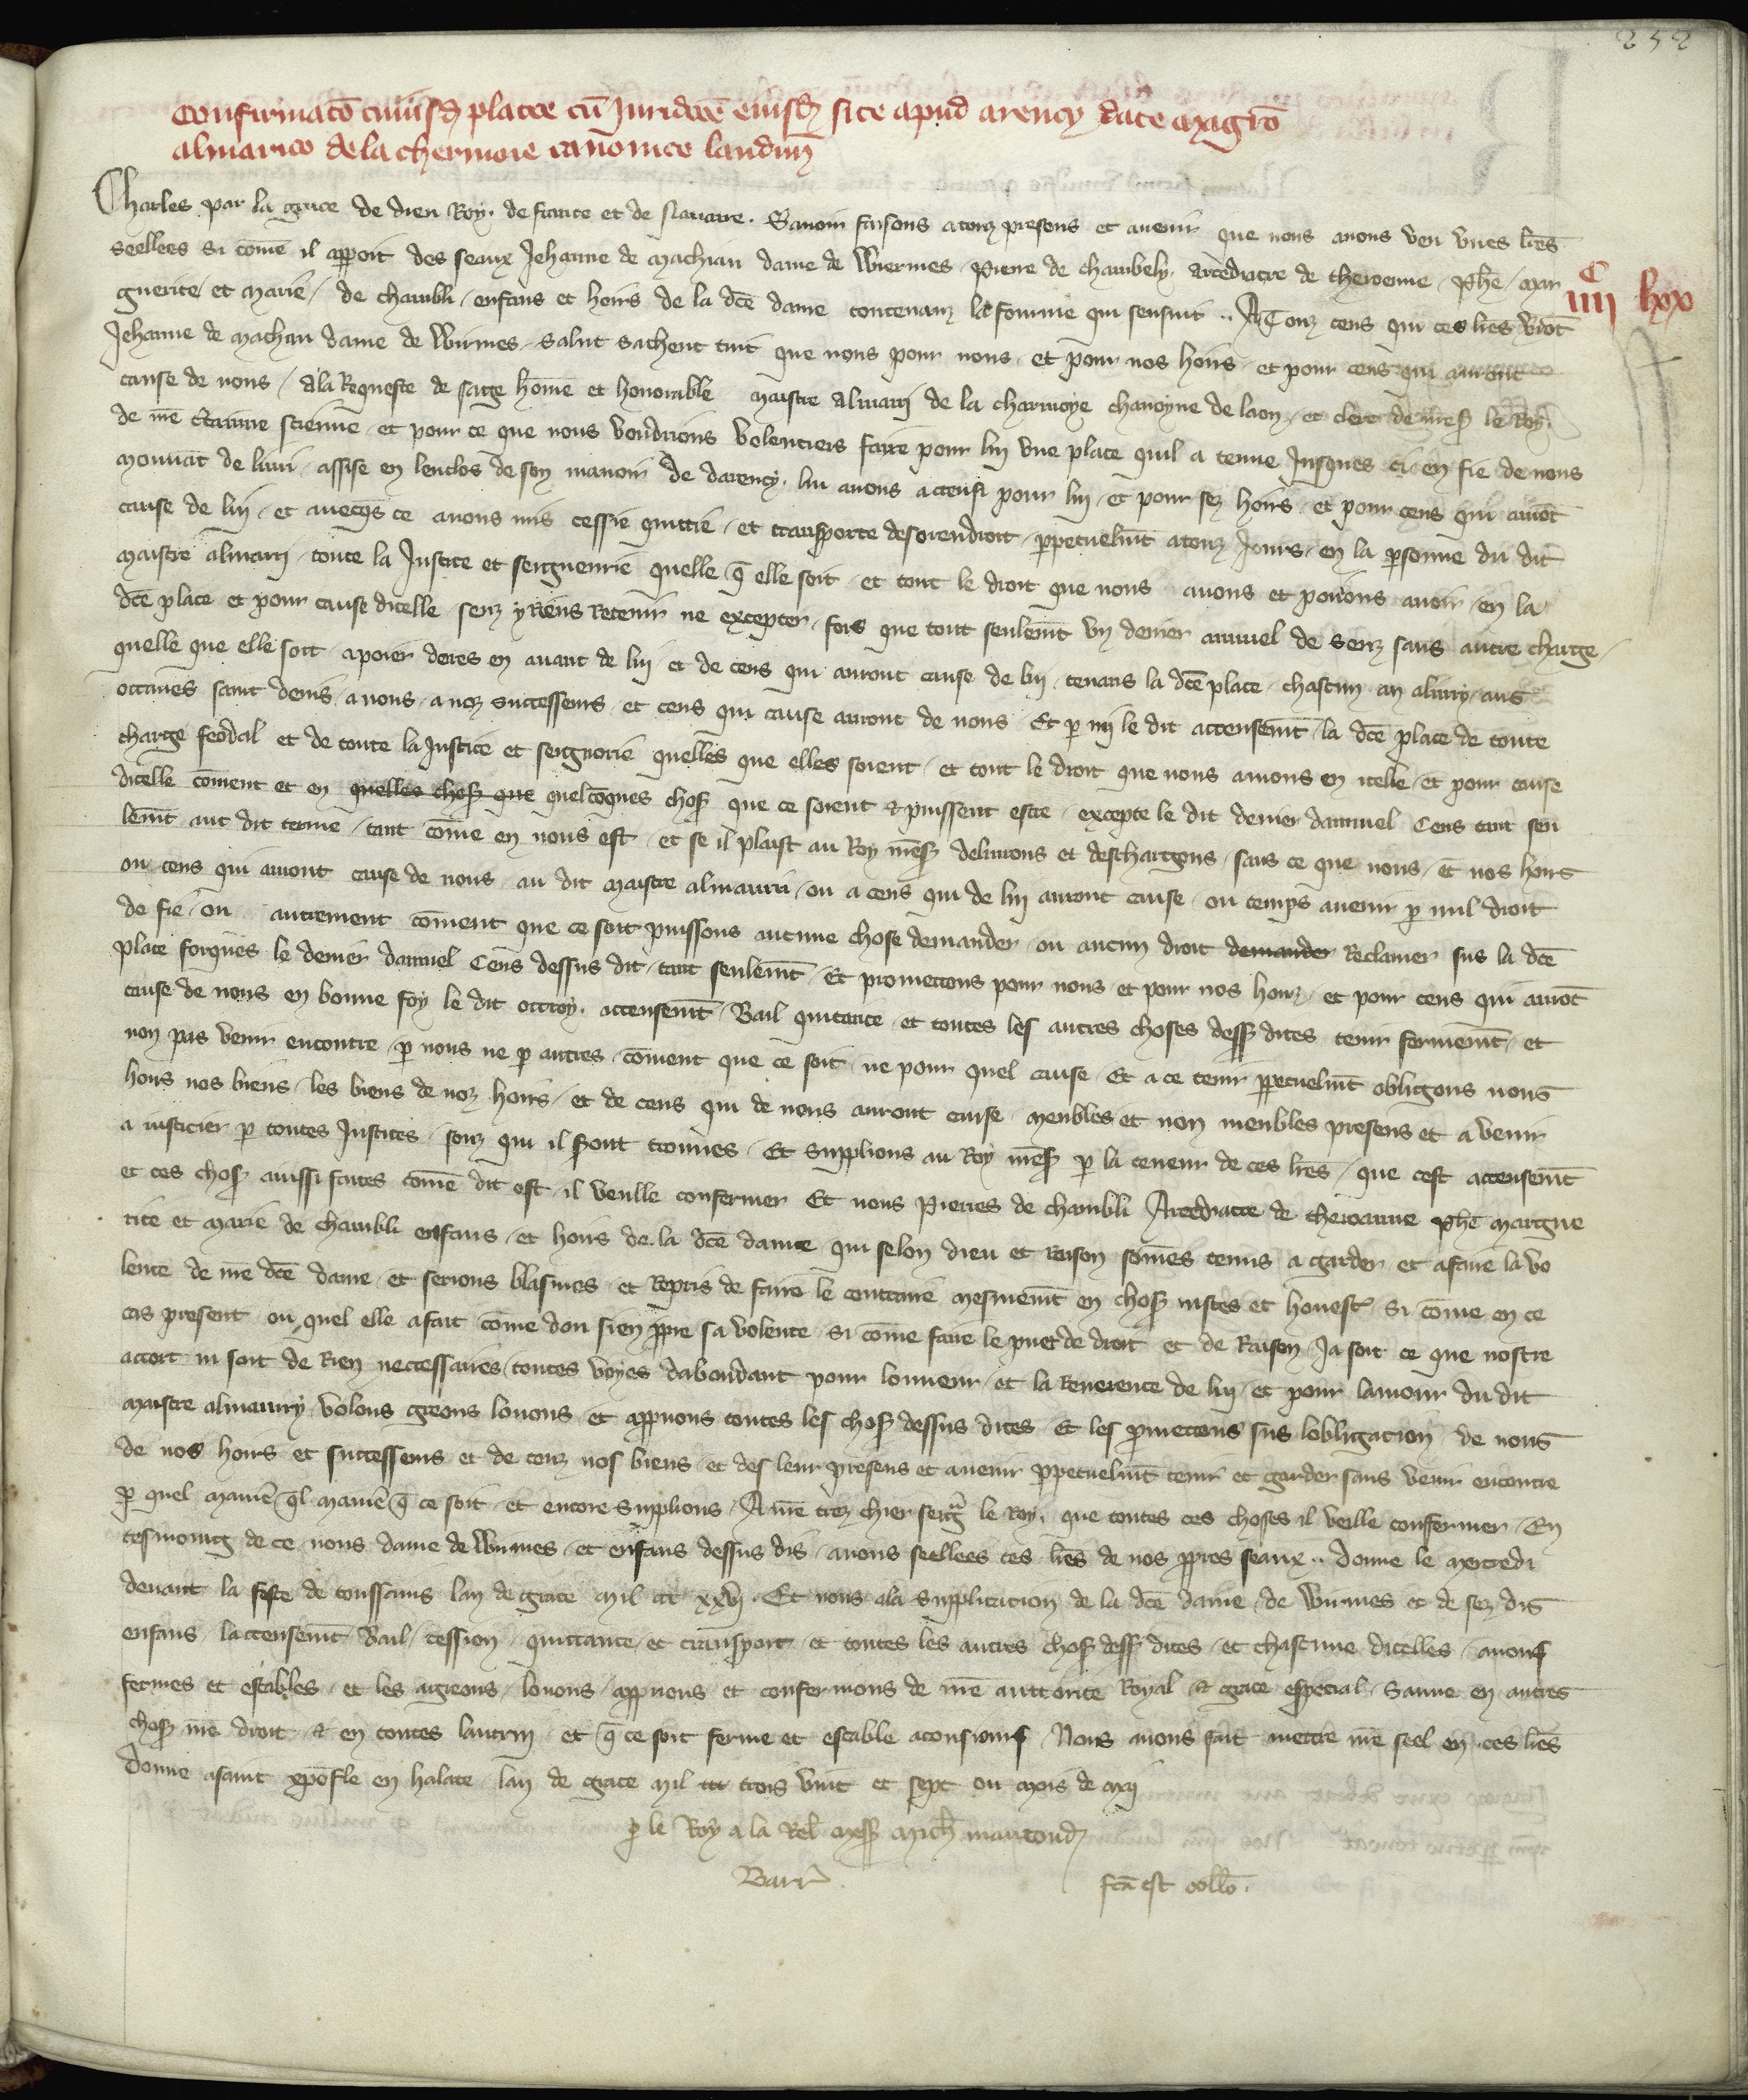 252
Confirmatō cuiusdꝫ platee cū Juridcōe eiusdꝫ site apud arency date magrō
almarico de la chermoie canonico laudun̄
Charles par la grace de dieu Roy de france et de Nauarre. Sauoir faisons a touz presens et auenir que nous auons veu vnes lr̄es
seellees si cōme il apparoit des seaux Jehanne de Machiau dame de Wiermes Pierre de chambely arcediacre de theroenne Phē mar
guerite et marie de chambli enfans et hoirs de la dcē dame contenanz la fourme qui sensuit .. A Touz ceus qui ces lr̄es verōt
iiii C lxx
Jehanne de machau dame de Wirmes salut sachent tuit que nous pour nous et pour nos hoirs et pour ceus qui auront
cause de nous a la Requeste de sage home et honorable maistre almarri de la charmoye chanoyne de laon et clerc de mess le Roy
de n̄re certainne science et pour ce que nous voudrions volentiers faire pour lui vne place quil a tenue Jusques ci en fie de nous
mouuāt de liuri assise en lenclos de son manoir de darency lui auons accensi pour lui et pour sez hoirs et pour ceus qui aurōt
cause de lui et auecqs ce auons mis cessie quittie et transporte desorendroit perpetuelmt a touz Jours en la personne du dit
maistre almarri toute la Justice et seigneurie quelle q̄ elle soit et tout le droit que nous auons et pouons auoir en la
dcē place et pour cause dicelle senz y Riens Retenir ne excepter fors que tout seulemt vn denier annuel de senz sans autre charge
quelle que elle soit apoier dores en auant de lui et de ceus qui auront cause de lui tenans la dcē place chascun an a liury aus
octaues saint denis a nous a noz successeurs et ceus qui cause auront de nous Et p mi le dit accensemt la dcē place de toute
charge feodal et de toute la Justice et seignorie quelles que elles soient et tout le droit que nous auions en icelle et pour cause
dicelle cōment et en quelles choses que quelcōques choses que ce soient & puissent estre excepte le dit denier dannuel Cens tant seu
lemt aut dit terme tant cōme en nous est et se il plaist au Roy mess deliurons et deschargons sans ce que nous et nos hoirs
ou ceus qui auront cause de nous au dit maistre almaurri ou a ceus qui de lui auront cause ou temps auenir p nul droit
de fie ou autrement cōment que ce soit puissons aucune chose demander ou aucun droit demander Reclamer sus la dcē
place forques le denier dannuel Cens dessus dit tant seulemt Et promettons pour nous et pour nos hoirz et pour ceus qui aurōt
cause de nous en bonne foy le dit ottroy accensemt Bail quitance et toutes les autres choses dess dites tenir fermemt et
non pas venir encontre p nous ne p autres cōment que ce soit ne pour quel cause Et a ce tenir perpetuelmt obligons nous
hoirs nos biens les biens de noz hoirs et de ceus qui de nous auront cause meubles et non meubles presens et a venir
a iusticier p toutes Justices souz qui il seront trouues Et supplions au Roy mess p la teneur de ces lr̄es que cest accensemt
et ces choses aussi faites cōme dit est il veulle confermer Et nous Pierres de chambli Arcediacre de theroanne phē margue
rite et marie de chambli enfans et hoirs de la dcē dame qui selon dieu et Raison somes tenus a garder et a faire la vo
lente de n̄re dcē dame et serions blasmes et Repris de faire le contraire mesmemt en choses iustes et honest si cōme en ce
cas present ou quel elle a fait cōme dou sien ppre sa volente si cōme faire le puet de droit et de Raison Ja soit ce que nostre
accort ni soit de Rien neccessaires toutes voyes dabondant pour lonneur et la Reuerence de lui et pour lamour du dit
maistre almaurry volons greons louons et appuons toutes les choses dessus dites Et les pmettons sus lobligacion de nous
de nos hoirs et successeurs et de touz nos biens et des leur presens et auenir perpetuelmt tenir et garder sans venir encontre
p quel maniē ql maniē q̄ ce soit et encore supplions A n̄re trez chier seigr le Roy que toutes ces choses il veille confermer En
tesmoing de ce nous dame de Wirmes et enfans dessus dis auons seellees ces lr̄es de nos ppres seaux .. Donne le mercredi
deuant la feste de toussains lan de grace mil ccc xxvj Et nous a la supplicacion de la dcē dame de Wirmes et de sez dis
enfans laccensemt Bail cession quittance et transport et toutes les autres choses dess dites et chascune dicelles auons
fermes et estables et les aigreons louons appuons et confermons de n̄re auttorite Royal & grace especial Sauue en autres
choses n̄re droit & en toutes lautrui et q̄ ce soit ferme et estable a tousiours Nous auons fait mettre n̄re seel en ces lr̄es
Donne a saint xpōfle en halate lan de grace mil ccc trois vint et sept ou mois de maj
p le Roy a la Rel mess Mich mauconduꝫ
Barr
fcā est collo.